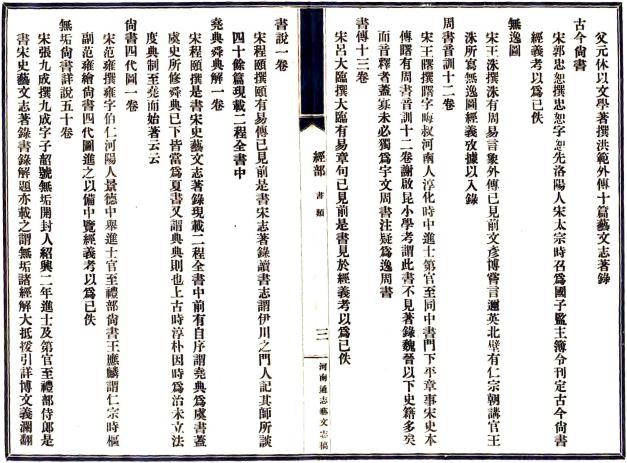 父元休以文學著撰洪範外傳十篇藝文志著錄
古今尙書
宋郭忠恕撰忠恕字恕先洛陽人宋太宗時召爲國子監主簿令刊定古今尙書
經義考以爲已佚
無逸圖
宋王洙撰洙有周易言象外傳已見前文彥博嘗言邇英北壁有仁宗朝講官王
洙所寫無逸圖經義攷據以入錄
周書音訓十二卷
宋王曙撰曙字晦叔河南人淳化時中進士第官至同中書門下平章事宋史本
傳曙有周書音訓十二卷謝啟昆小學考謂此書不見著錄魏晉以下史籍多矣
而音釋者蓋寡未必獨爲宇文周書注疑爲逸周書
書傳十三卷
宋呂大臨撰大臨有易章句已見前是書見於經義考以爲已佚
經部 書類
三
河南通志藝文志稿
書說一卷
宋程頤撰頤有易傳已見前是書宋志著錄讀書志謂伊川之門人記其師所談
四十餘篇現載二程全書中
堯典舜典解一卷
宋程頤撰是書宋史藝文志著錄現載二程全書中前有自序謂堯典爲虞書蓋
虞史所修舜典已下皆當爲夏書又謂典典則也上古時淳朴因時爲治未立法
度典制至堯而始著云云
尙書四代圖一卷
宋范雍撰雍字伯仁河陽人景德中舉進士官至禮部尙書王應麟謂仁宗時樞
副范雍繪尙書四代圖進之以備中覽經義考以爲已佚
無垢尙書詳說五十卷
宋張九成撰九成字子韶號無垢開封人紹興二年進士及第官至禮部侍郎是
書宋史藝文志著錄書錄解題亦載之謂無垢諸經解大抵援引詳博文義瀾翻